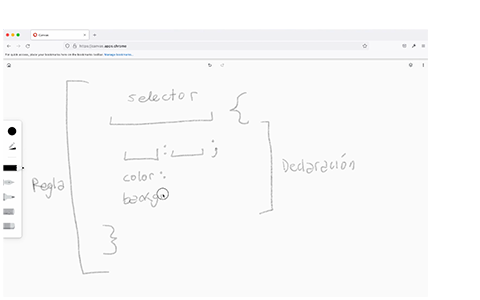 Canvas
https://canvas.apps.chrome
For quick access, place your bookmarks here on the bookmarks toolbar. Manage bookmarks...
selector {
: ;
color:
backgo
}
Regla
Declaración